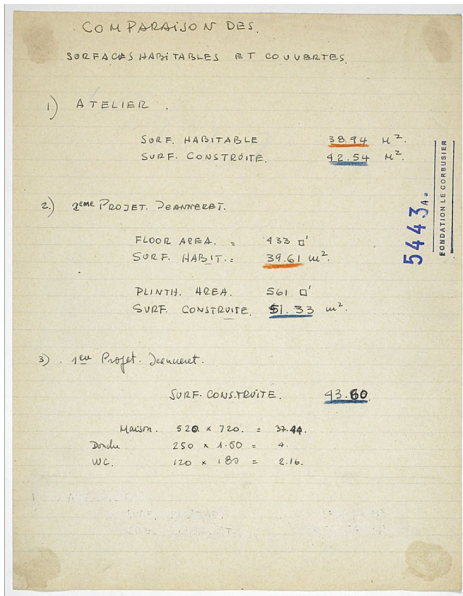 COMPARAISON DES.
SURFACES HABITABLES ET COUVERTES.
1) ATELIER.
SURF. HABITABLE 38.94 M².
SURF. CONSTRUITE. 42.54 M².
2.) 2eme PROJET. JEANNERET.
FLOOR AREA. = 433 □'
SURF. HABIT. = 39.61 m².
PLINTH. AREA. 561 □'
SURF CONSTRUITE. 51.33 m².
3) 1er Projet. Jeanneret.
SURF. CONSTRUITE. 43.60
Maison. 520 x 720. = 37.44.
250 x 1.60 = 4.
WC. 120 x 180 = 2.16.
5443 A.
FONDATION LE CORBUSIER